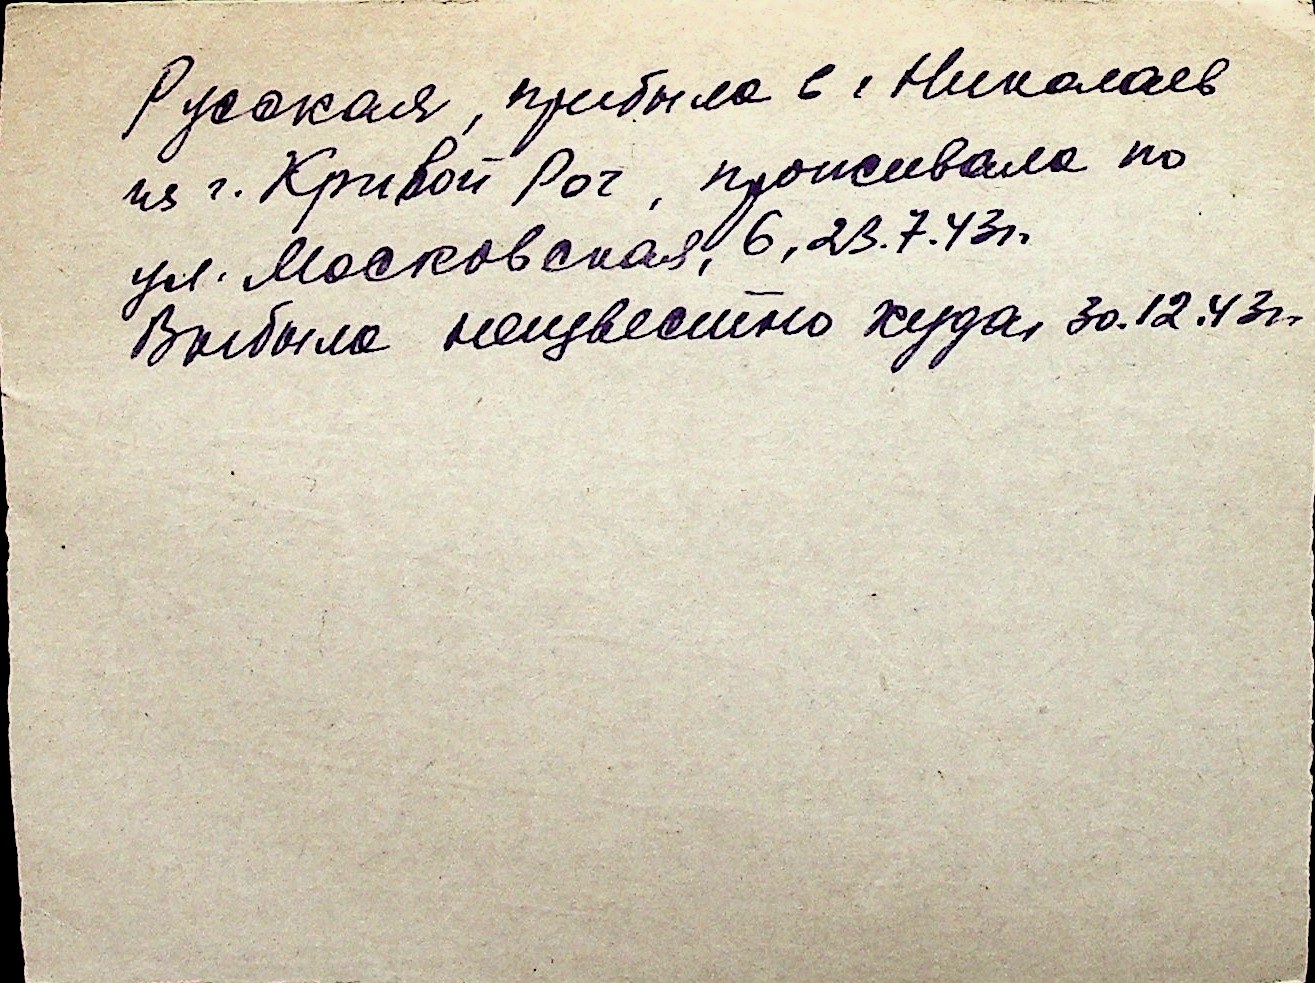 Русская, прибыла в г Николаев
из г. Кривой Рог, проживала по
ул. Московская, 6, 23.7.43г.
Выбыла неизвестно куда, 30.12.43г.